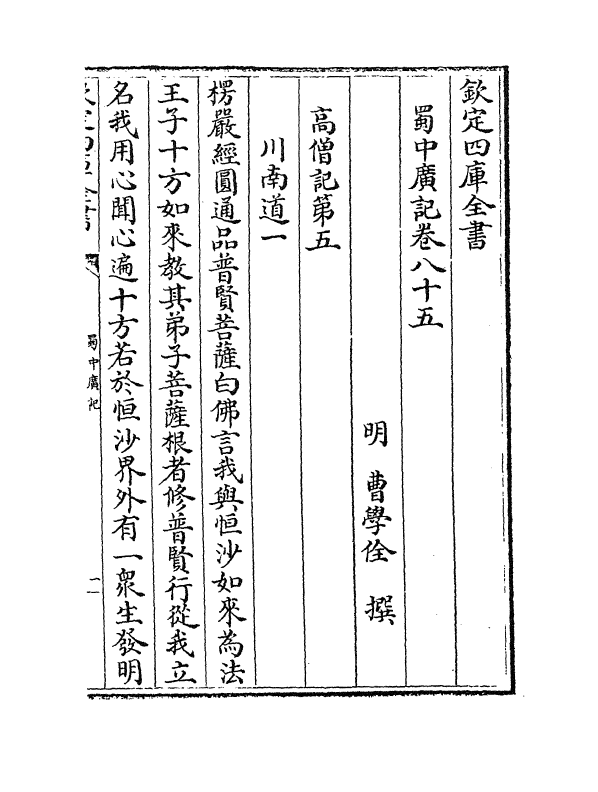 欽定四庫全書
蜀中廣記卷八十五
明 曹學佺 撰
高僧記第五
川南道一
楞嚴經圓通品普賢菩薩白佛言我與恒沙如來為法
王子十方如來教其弟子菩薩根者修普賢行從我立
名我用心聞心遍十方若於恒沙界外有一衆生發明
蜀中廣記